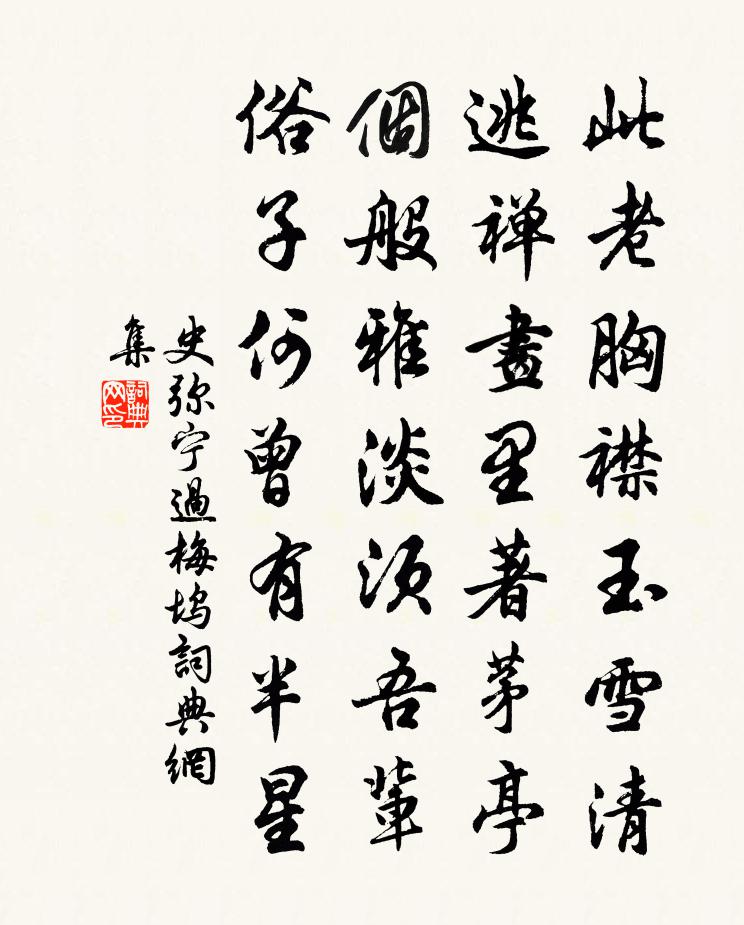 此老胸襟玉雪清
逃禅畫里著茅亭
個般雅淡須吾輩
俗子何曾有半星
史弥宁過梅塢詞典網
集
詞典
网印